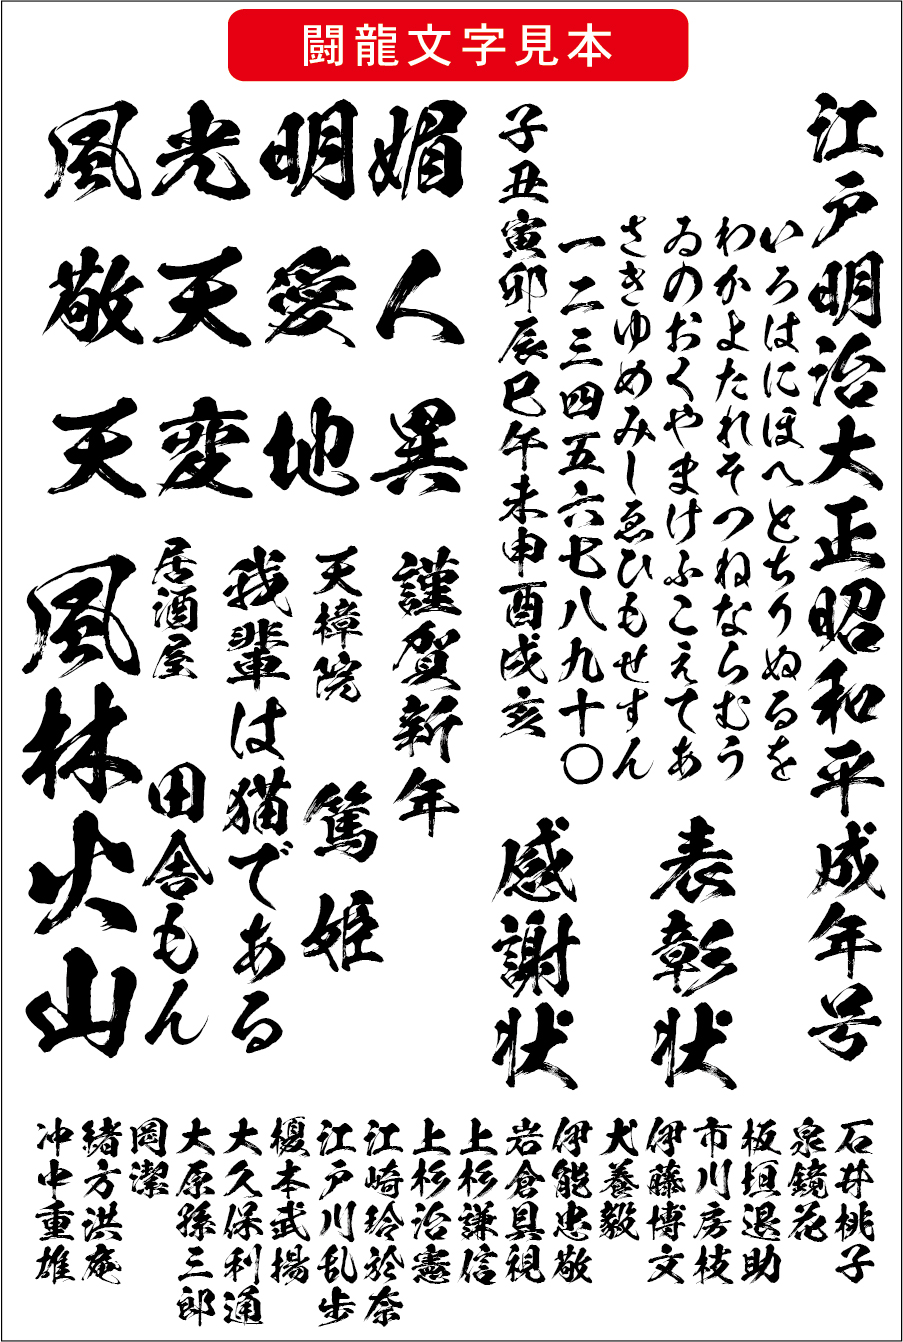 闘龍文字見本
江戸明治大正昭和平成年号
いろはにほへとちりぬるを
わかよたれそつねならむう
ゐのおくやまけふこえてあ
さきゆめみしゑひもせすん
一二三四五六七八九十〇
子丑寅卯辰巳午未申酉戌亥
表彰状
感謝状
風光明媚
敬天愛人
天変地異
謹賀新年
天樟院 篤姫
我輩は猫である
居酒屋 田舎もん
風林火山
石井桃子
泉鏡花
板垣退助
市川房枝
伊藤博文
犬養毅
伊能忠敬
岩倉具視
上杉謙信
上杉治憲
江崎玲於奈
江戸川乱歩
榎本武揚
大久保利通
大原孫三郎
岡潔
緒方洪庵
冲中重雄